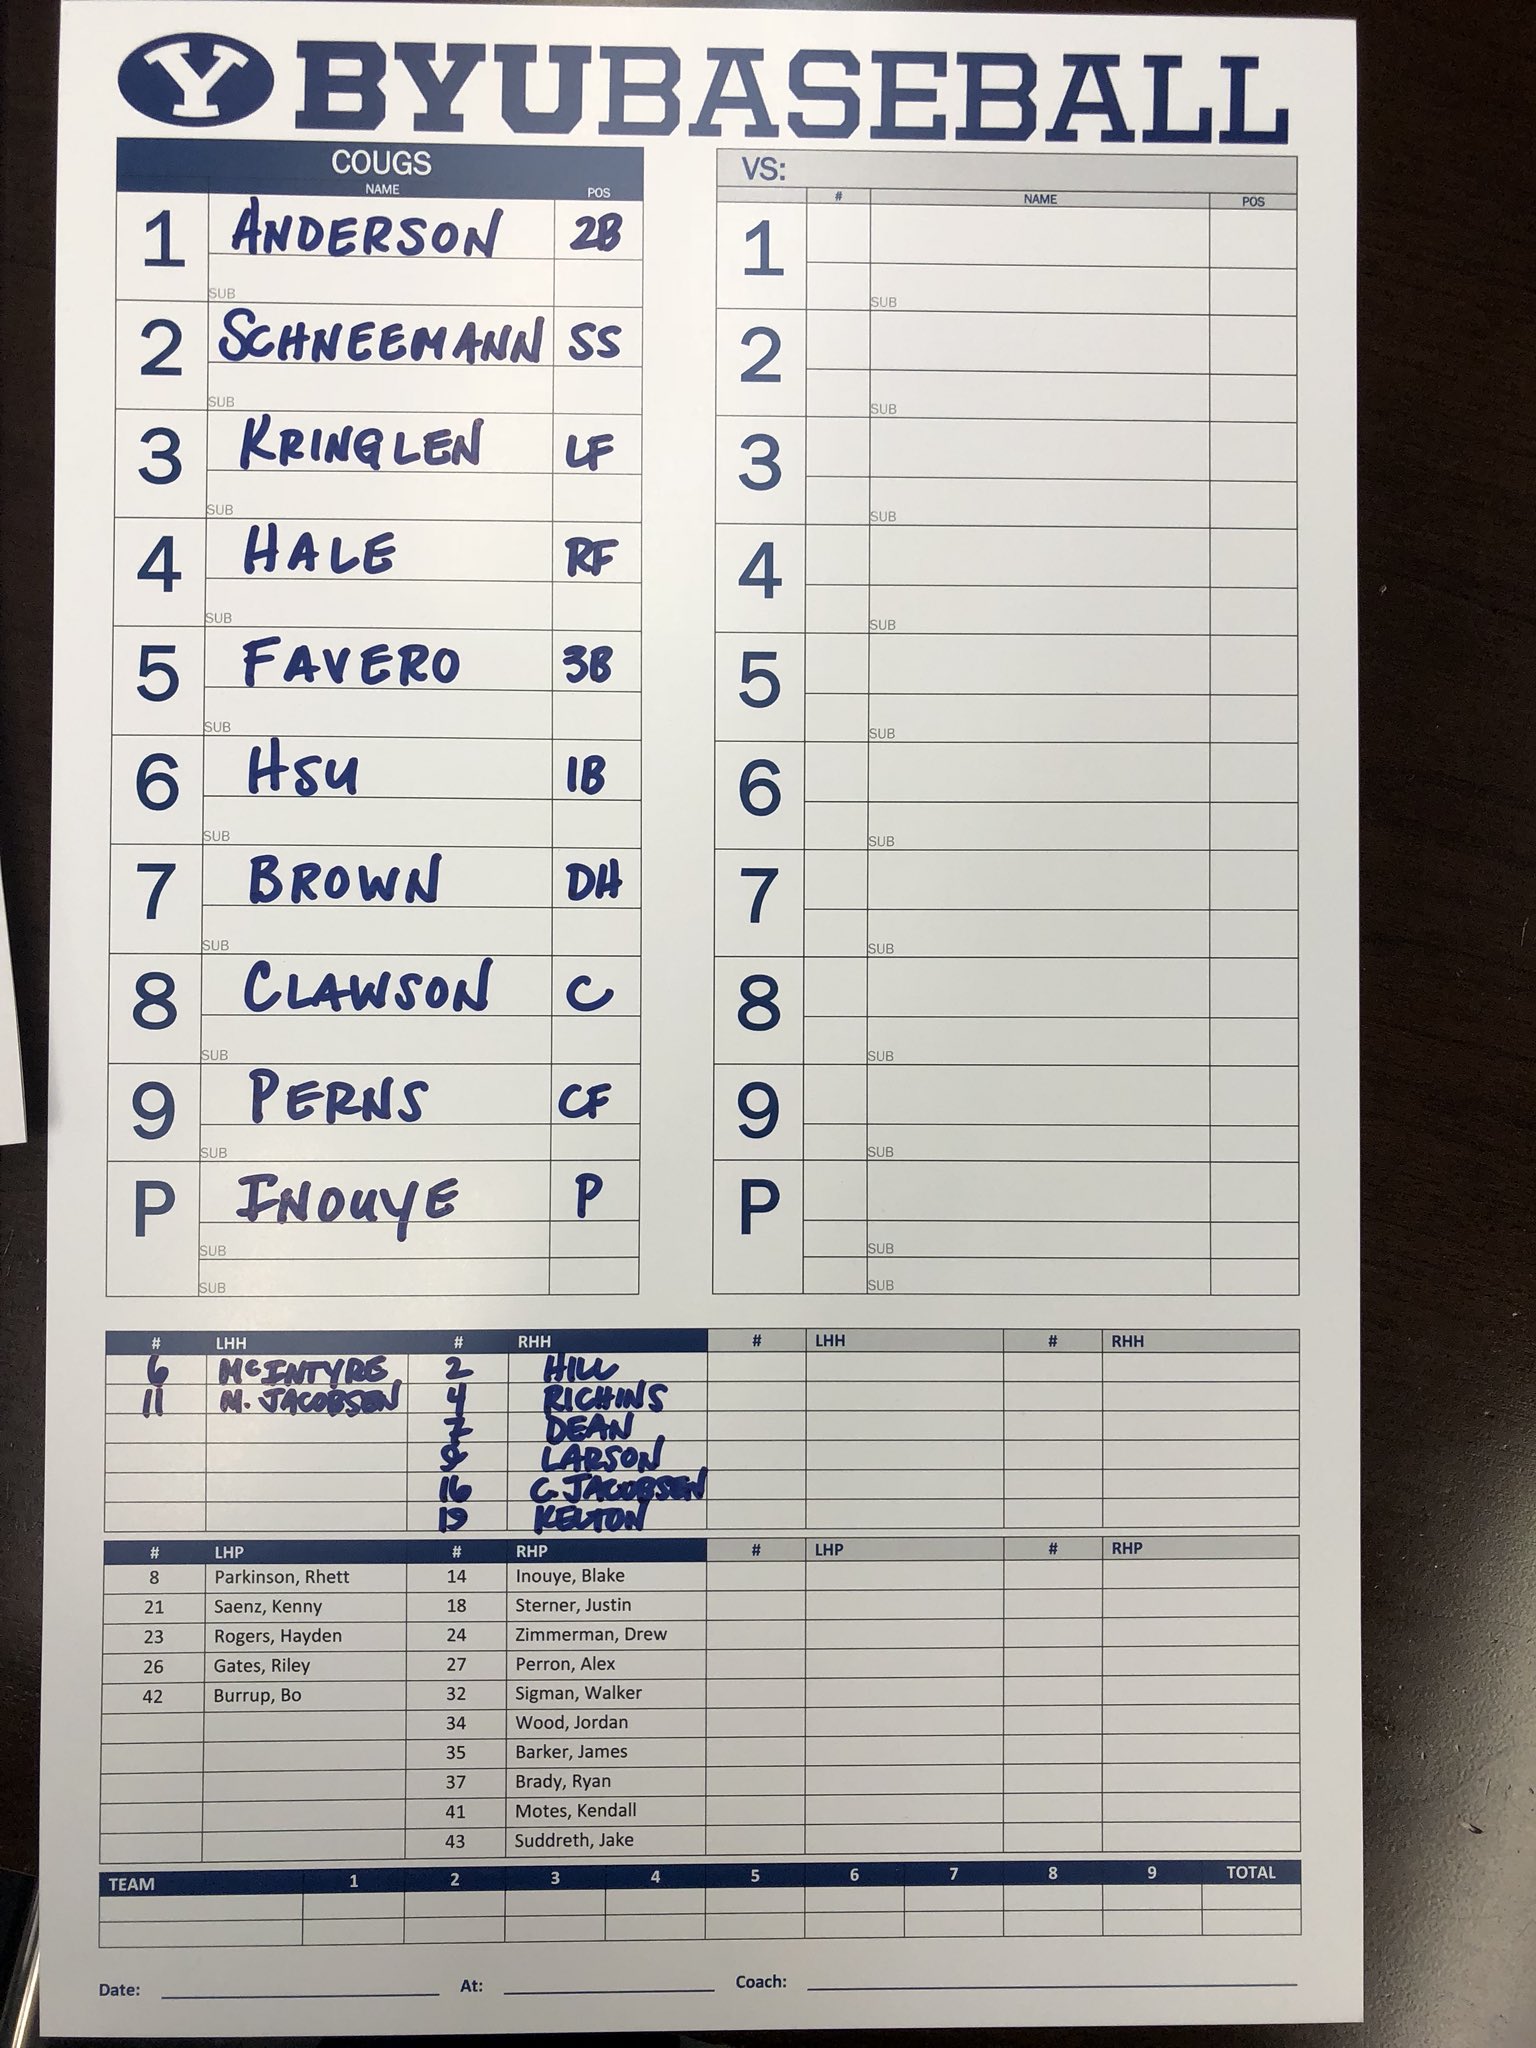 Y BYUBASEBALL
COUGS
NAME POS
1 ANDERSON 2B
SUB
2 SCHNEEMANN SS
SUB
3 KRINGLEN LF
SUB
4 HALE RF
SUB
5 FAVERO 3B
SUB
6 HSU 1B
SUB
7 BROWN DH
SUB
8 CLAWSON C
SUB
9 PERNS CF
SUB
P INOUYE P
SUB
SUB
VS:
# NAME POS
1
SUB
2
SUB
3
SUB
4
SUB
5
SUB
6
SUB
7
SUB
8
SUB
9
SUB
P
SUB
SUB
# LHH # RHH # LHH # RHH
6 McINTYRE 2 HILL
11 M. JACOBSEN 4 RICHINS
7 DEAN
LARSON
16 C. JACOBSEN
19 KELTON
# LHP # RHP # LHP # RHP
8 Parkinson, Rhett 14 Inouye, Blake
21 Saenz, Kenny 18 Sterner, Justin
23 Rogers, Hayden 24 Zimmerman, Drew
26 Gates, Riley 27 Perron, Alex
42 Burrup, Bo 32 Sigman, Walker
34 Wood, Jordan
35 Barker, James
37 Brady, Ryan
41 Motes, Kendall
43 Suddreth, Jake
TEAM 1 2 3 4 5 6 7 8 9 TOTAL
Date: At: Coach: